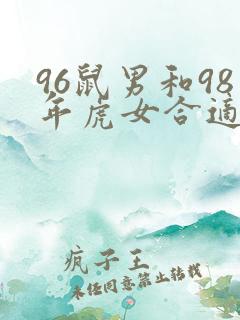 96鼠男和98
年虎女合适
疯子王
未经同意禁止转载